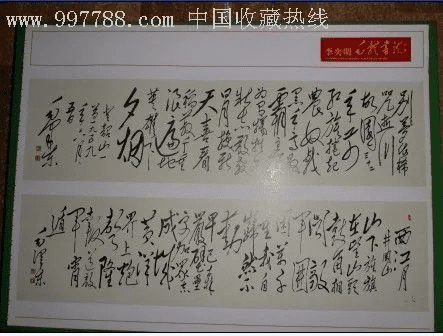 www.997788.com 中国收藏热线
别梦依稀
咒逝川
故园三十
红旗卷起
农奴戟
黑手高悬
霸主鞭
为有牺牲
日月换新
天喜看
稻菽千重
浪遍地
英雄下
夕烟
毛泽东
西江月
井冈山
山下旌旗
在望山头
鼓角相
闻敌
军围
困万千
重我自
岿然不
动
早已森
严壁垒
更加众志
成城
黄洋
界上炮
声隆
报道敌
军宵
遁
毛泽东